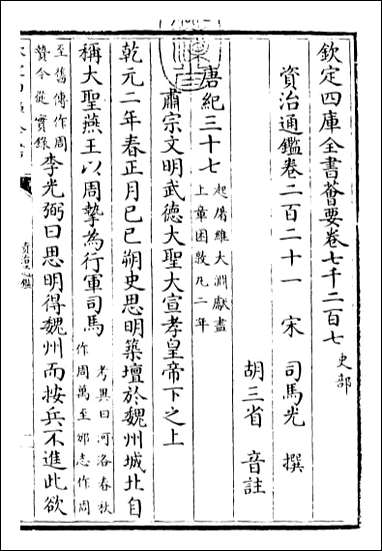 欽定四庫全書薈要卷七千二百七 史部
資治通鑑卷二百二十一 宋 司馬光 撰
胡三省 音註
唐紀三十七 起屠維大淵獻盡
上章困敦凡二年
肅宗文明武德大聖大宣孝皇帝下之上
乾元二年春正月己巳朔史思明築壇於魏州城北自
稱大聖燕王以周摯為行軍司馬 考異曰河洛春秋
作周萬至邠志作周
至舊傳作周
贄今從實錄 李光弼曰思明得魏州而按兵不進此欲